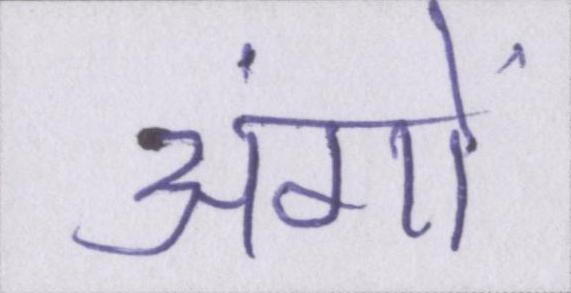 अंगों